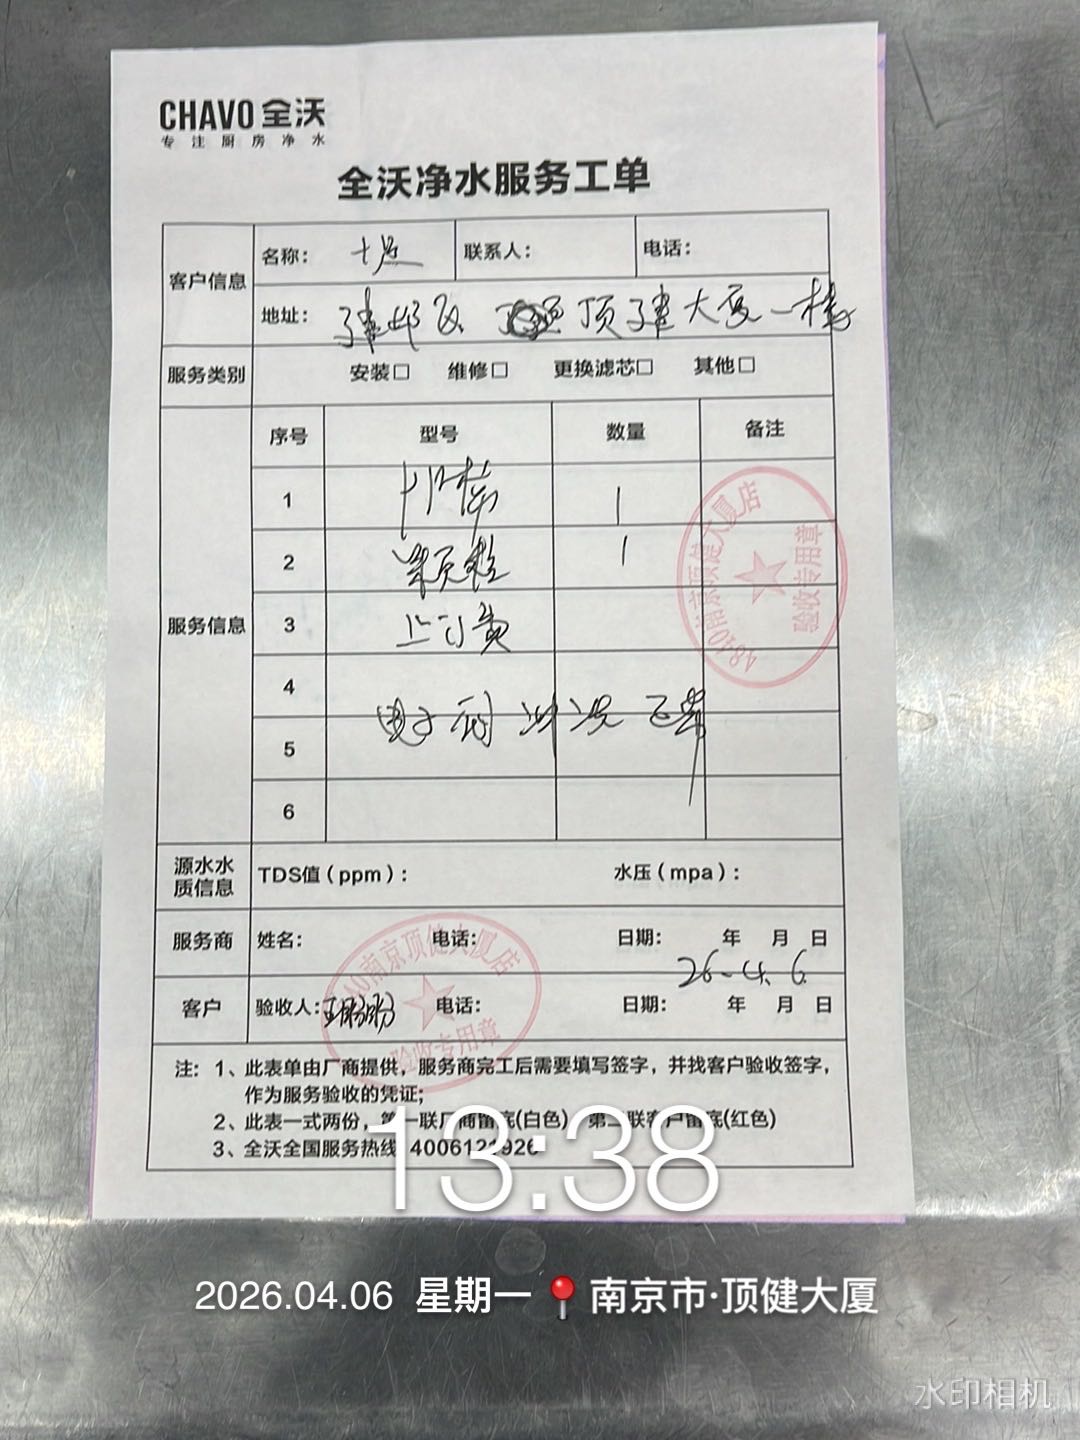 CHAVO 全沃
专注厨房净水
全沃净水服务工单
客户信息 名称： 七点 联系人： 电话：
地址： 建邺区 顶建大厦一楼
服务类别 安装□ 维修□ 更换滤芯□ 其他□
服务信息 序号 型号 数量 备注
1 1
2 颗粒 1
3 上门费
4
电子阀冲洗正常
5
6
4840南京顶健大厦店
验收专用章
源水水质信息 TDS值（ppm）： 水压（mpa）：
服务商 姓名： 电话： 日期： 年 月 日
26-4.6.
客户 验收人： 电话： 日期： 年 月 日
南京顶健大厦店
验收专用章
注：1、此表单由厂商提供，服务商完工后需要填写签字，并找客户验收签字，
作为服务验收的凭证；
2、此表一式两份，第一联厂商留底(白色) 第二联客户留底(红色)
3、全沃全国服务热线 4006121926
13:38
2026.04.06 星期一 南京市·顶健大厦
水印相机